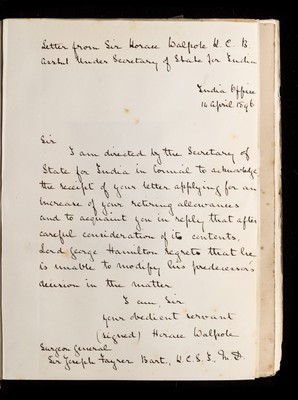 Letter from Sir Horace Walpole K. C. B
Assist Under Secretary of State for India
India Office
16 April 1896
Sir
I am directed by the Secretary of
State for India in Council to acknowledge
the receipt of your letter applying for an
increase of your retiring allowances
and to acquaint you in reply that after
careful consideration of its contents,
Lord George Hamilton regrets that he
is unable to modify his predecessor's
decision in the matter
I am, Sir
your obedient servant
(signed) Horace Walpole
Surgeon General
Sir Joseph Fayrer Bart., K.C.S.I., M.D.